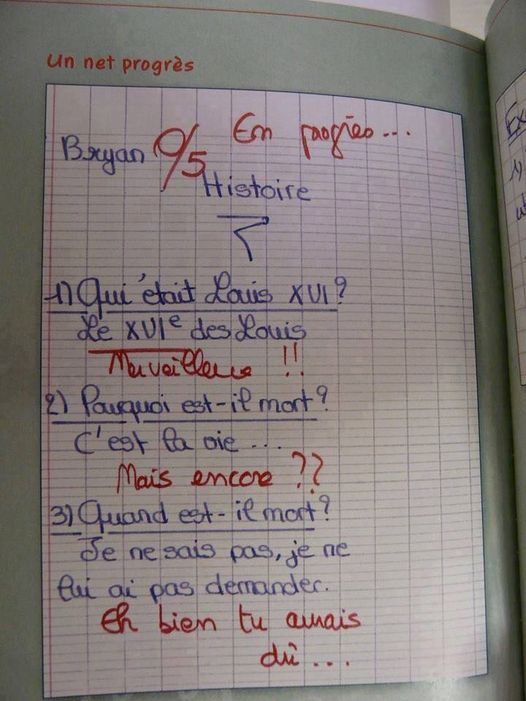 Un net progrès
Bryan 0/5 En progrès...
Histoire
1) Qui était Louis XVI ?
Le XVIe des Louis
Merveilleux !!
2) Pourquoi est-il mort ?
C'est la vie ...
Mais encore ??
3) Quand est-il mort ?
Je ne sais pas, je ne
lui ai pas demander.
Eh bien tu aurais
dû ...
Ex
1)